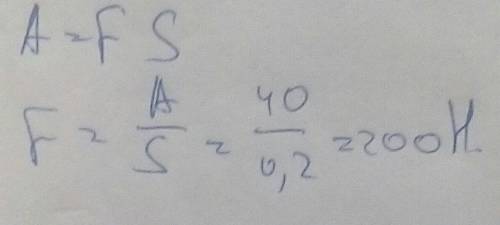 A = F S
F = A/S = 40/0,2 = 200 Н.